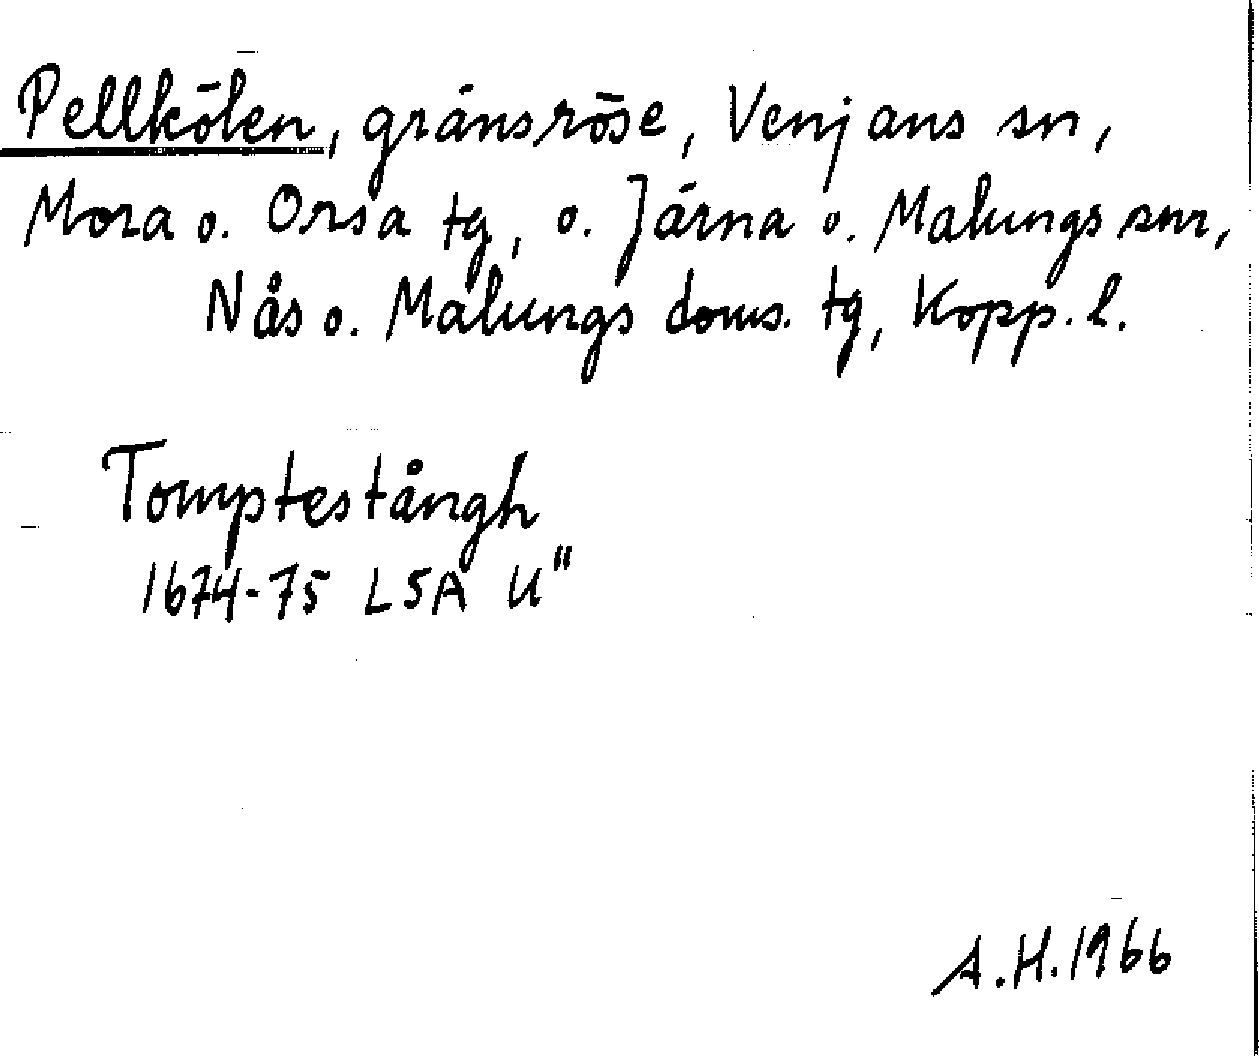 Pellkölen, gränsröse, Venjans sn,
Mora o. Orsa tg, o. Järna o. Malungs snr,
Nås o. Malungs doms. tg, Kopp. l.
Tomptestångh
1674-75 LSA U"
A.H. 1966